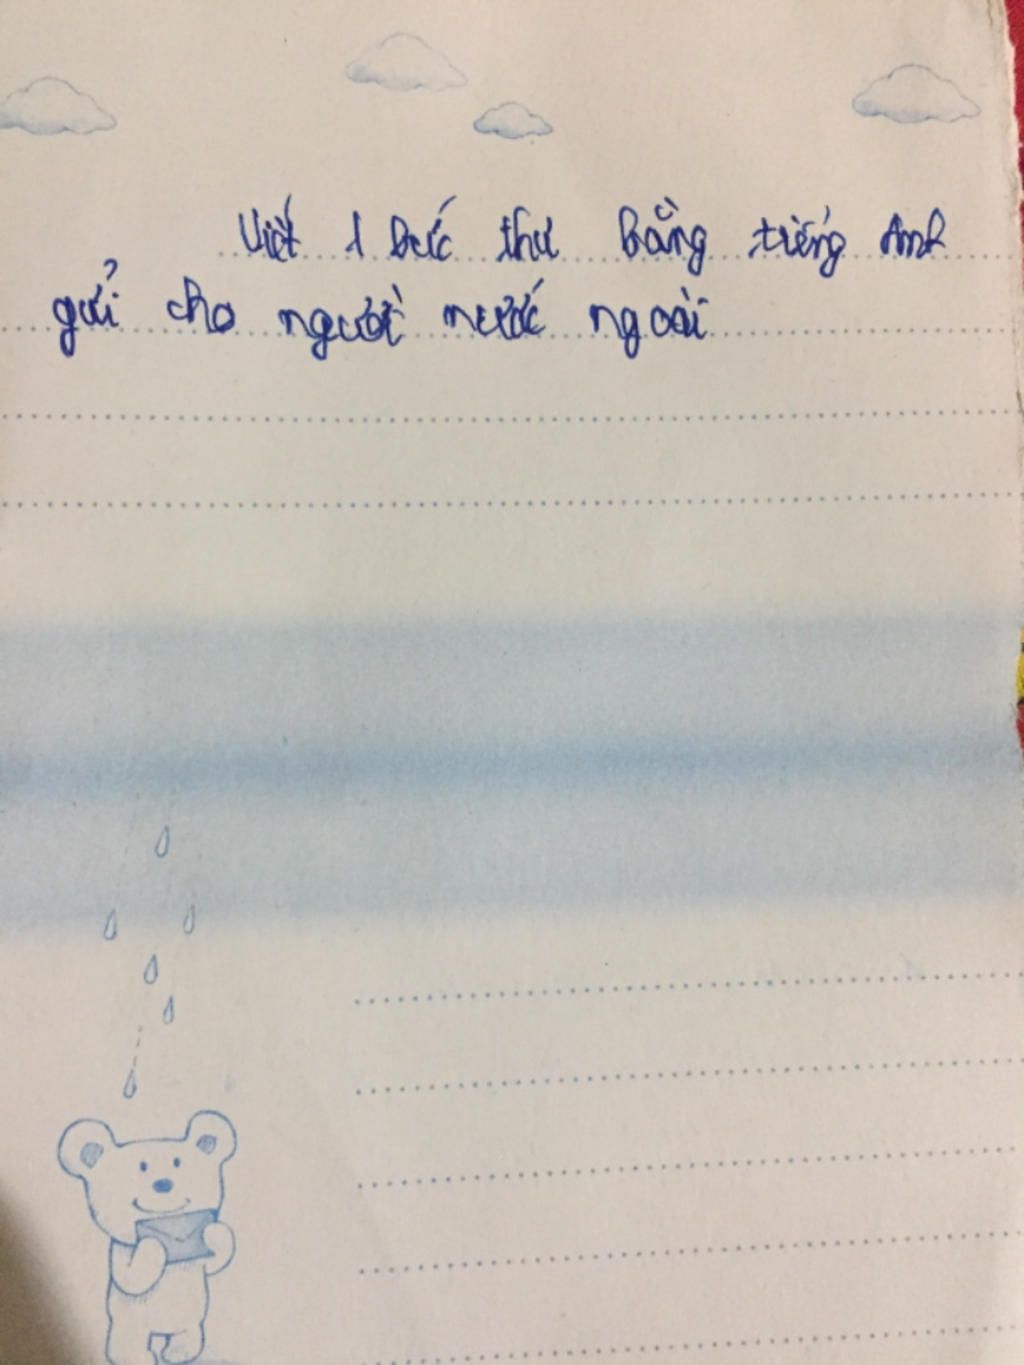 Viết 1 bức thư bằng tiếng Anh
gửi cho người nước ngoài